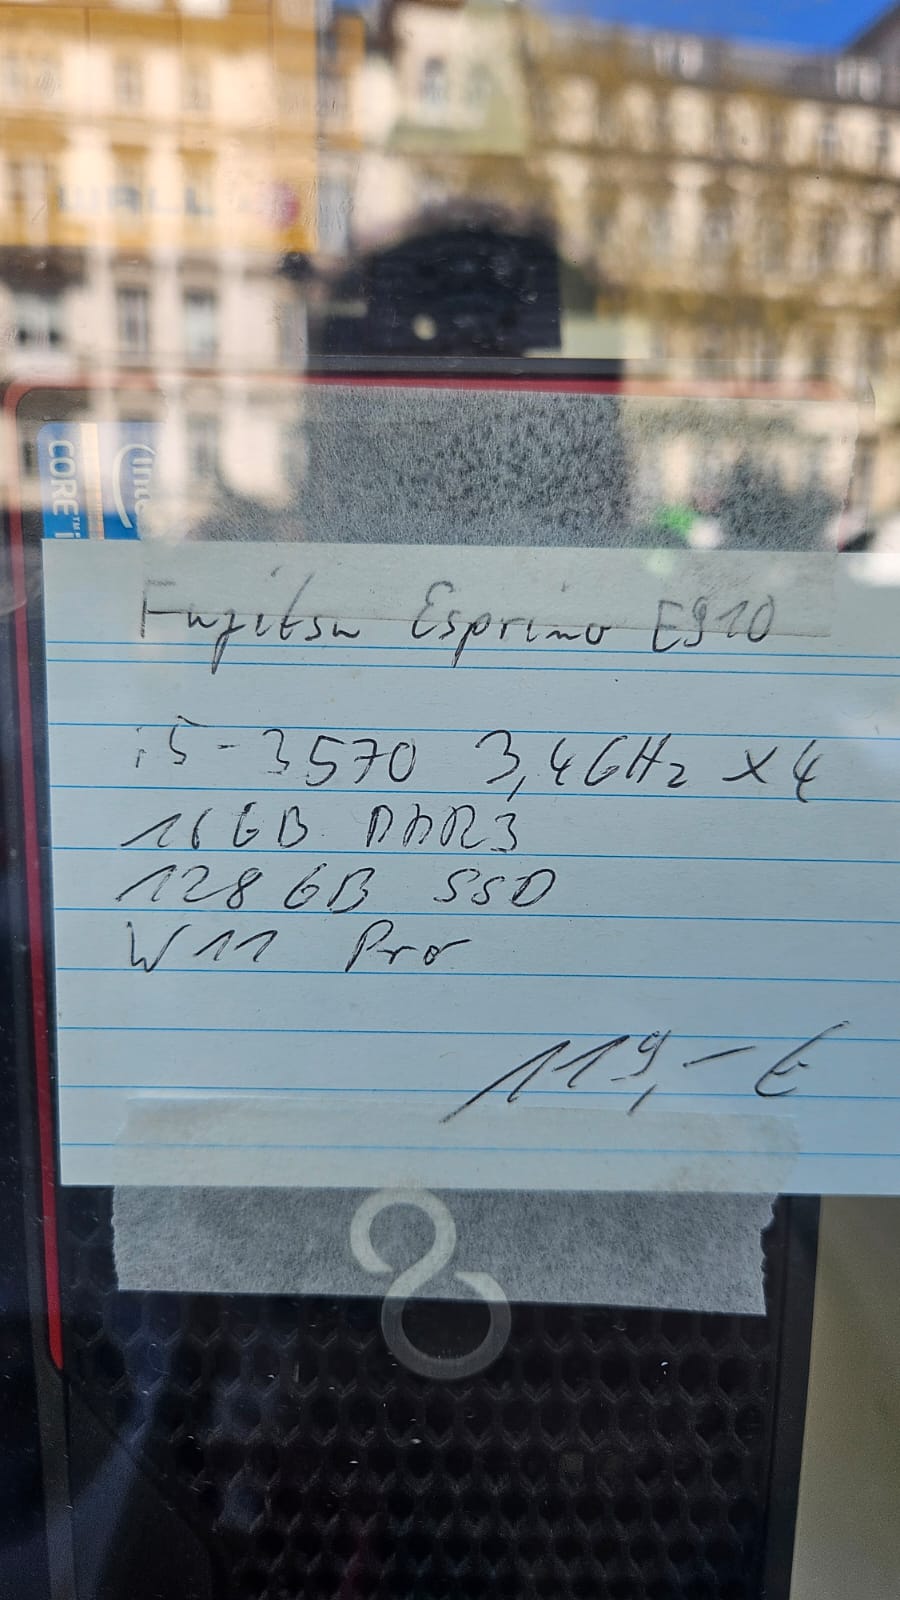 intel
CORE™ i
Fujitsu Esprimo E910
i5-3570 3,4GHz x4
16GB DDR3
128GB SSD
W11 Pro
119,- €